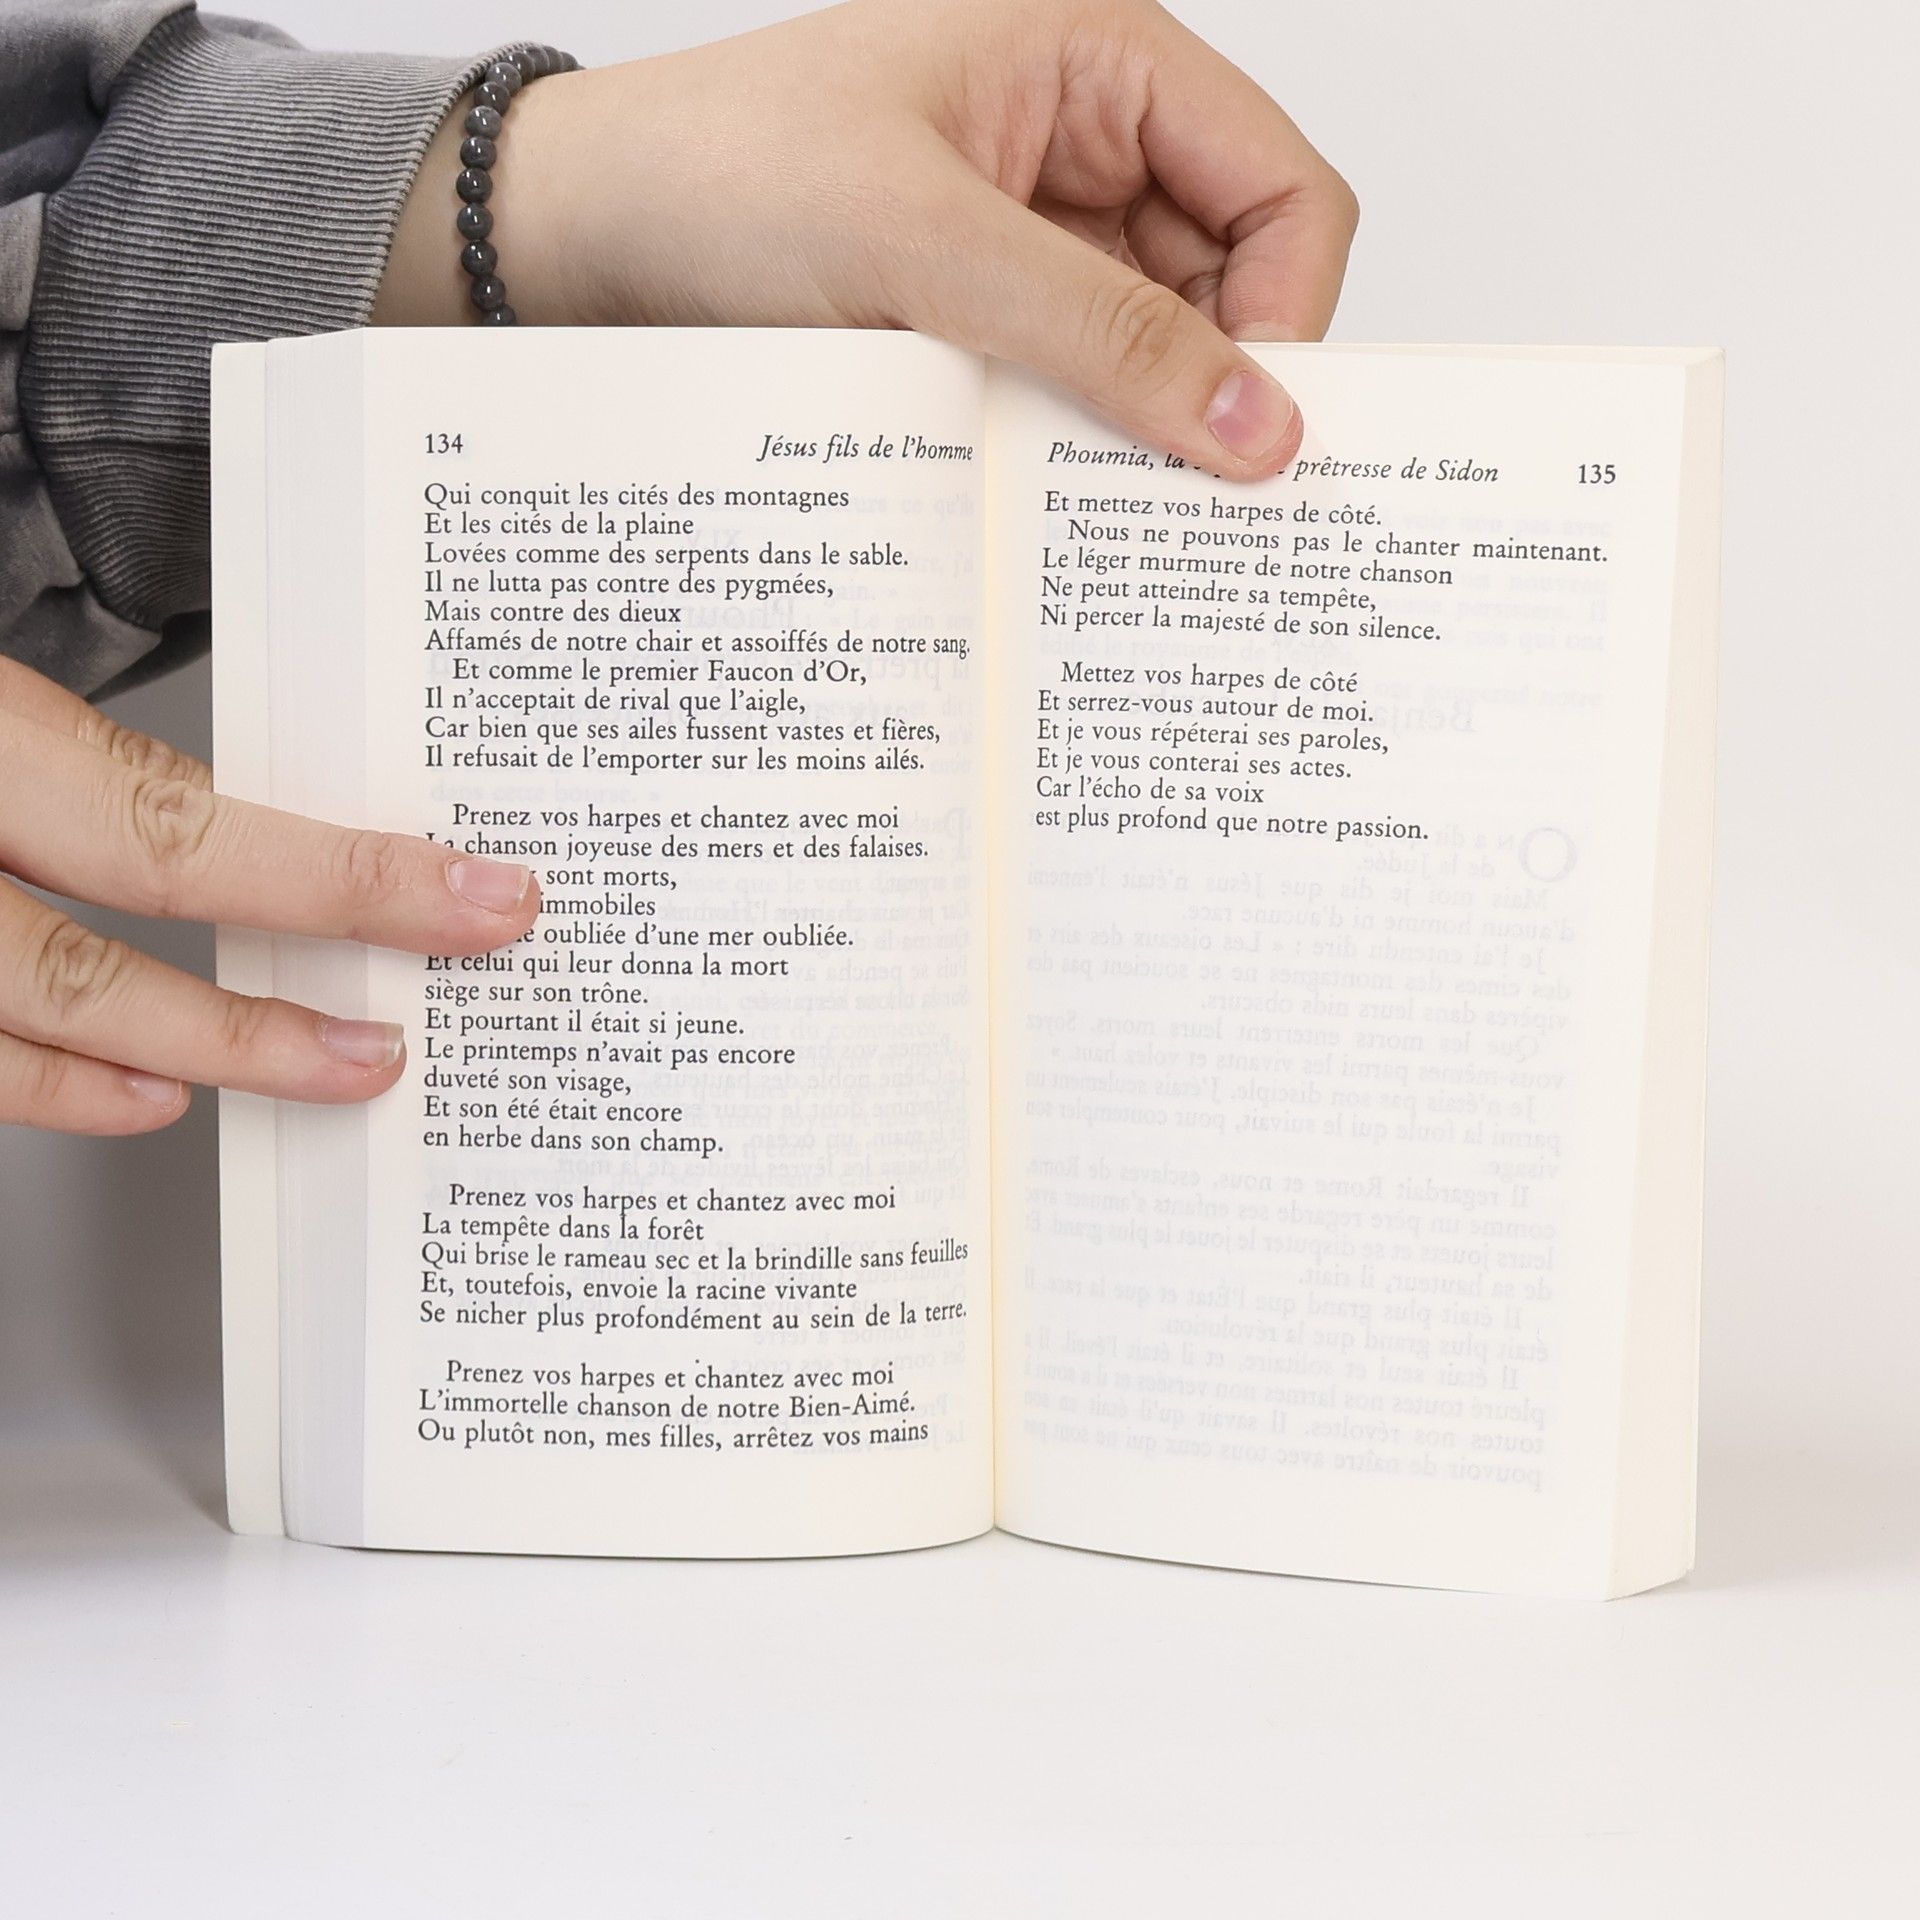 134 Jésus fils de l'homme
Qui conquit les cités des montagnes
Et les cités de la plaine
Lovées comme des serpents dans le sable.
Il ne lutta pas contre des pygmées,
Mais contre des dieux
Affamés de notre chair et assoiffés de notre sang.
Et comme le premier Faucon d'Or,
Il n'acceptait de rival que l'aigle,
Car bien que ses ailes fussent vastes et fières,
Il refusait de l'emporter sur les moins ailés.
Prenez vos harpes et chantez avec moi
La chanson joyeuse des mers et des falaises.
sont morts,
immobiles
oubliée d'une mer oubliée.
Et celui qui leur donna la mort
siège sur son trône.
Et pourtant il était si jeune.
Le printemps n'avait pas encore
duveté son visage,
Et son été était encore
en herbe dans son champ.
Prenez vos harpes et chantez avec moi
La tempête dans la forêt
Qui brise le rameau sec et la brindille sans feuilles
Et, toutefois, envoie la racine vivante
Se nicher plus profondément au sein de la terre.
Prenez vos harpes et chantez avec moi
L'immortelle chanson de notre Bien-Aimé.
Ou plutôt non, mes filles, arrêtez vos mains
Phoumia, la prêtresse de Sidon 135
Et mettez vos harpes de côté.
Nous ne pouvons pas le chanter maintenant.
Le léger murmure de notre chanson
Ne peut atteindre sa tempête,
Ni percer la majesté de son silence.
Mettez vos harpes de côté
Et serrez-vous autour de moi.
Et je vous répéterai ses paroles,
Et je vous conterai ses actes.
Car l'écho de sa voix
est plus profond que notre passion.